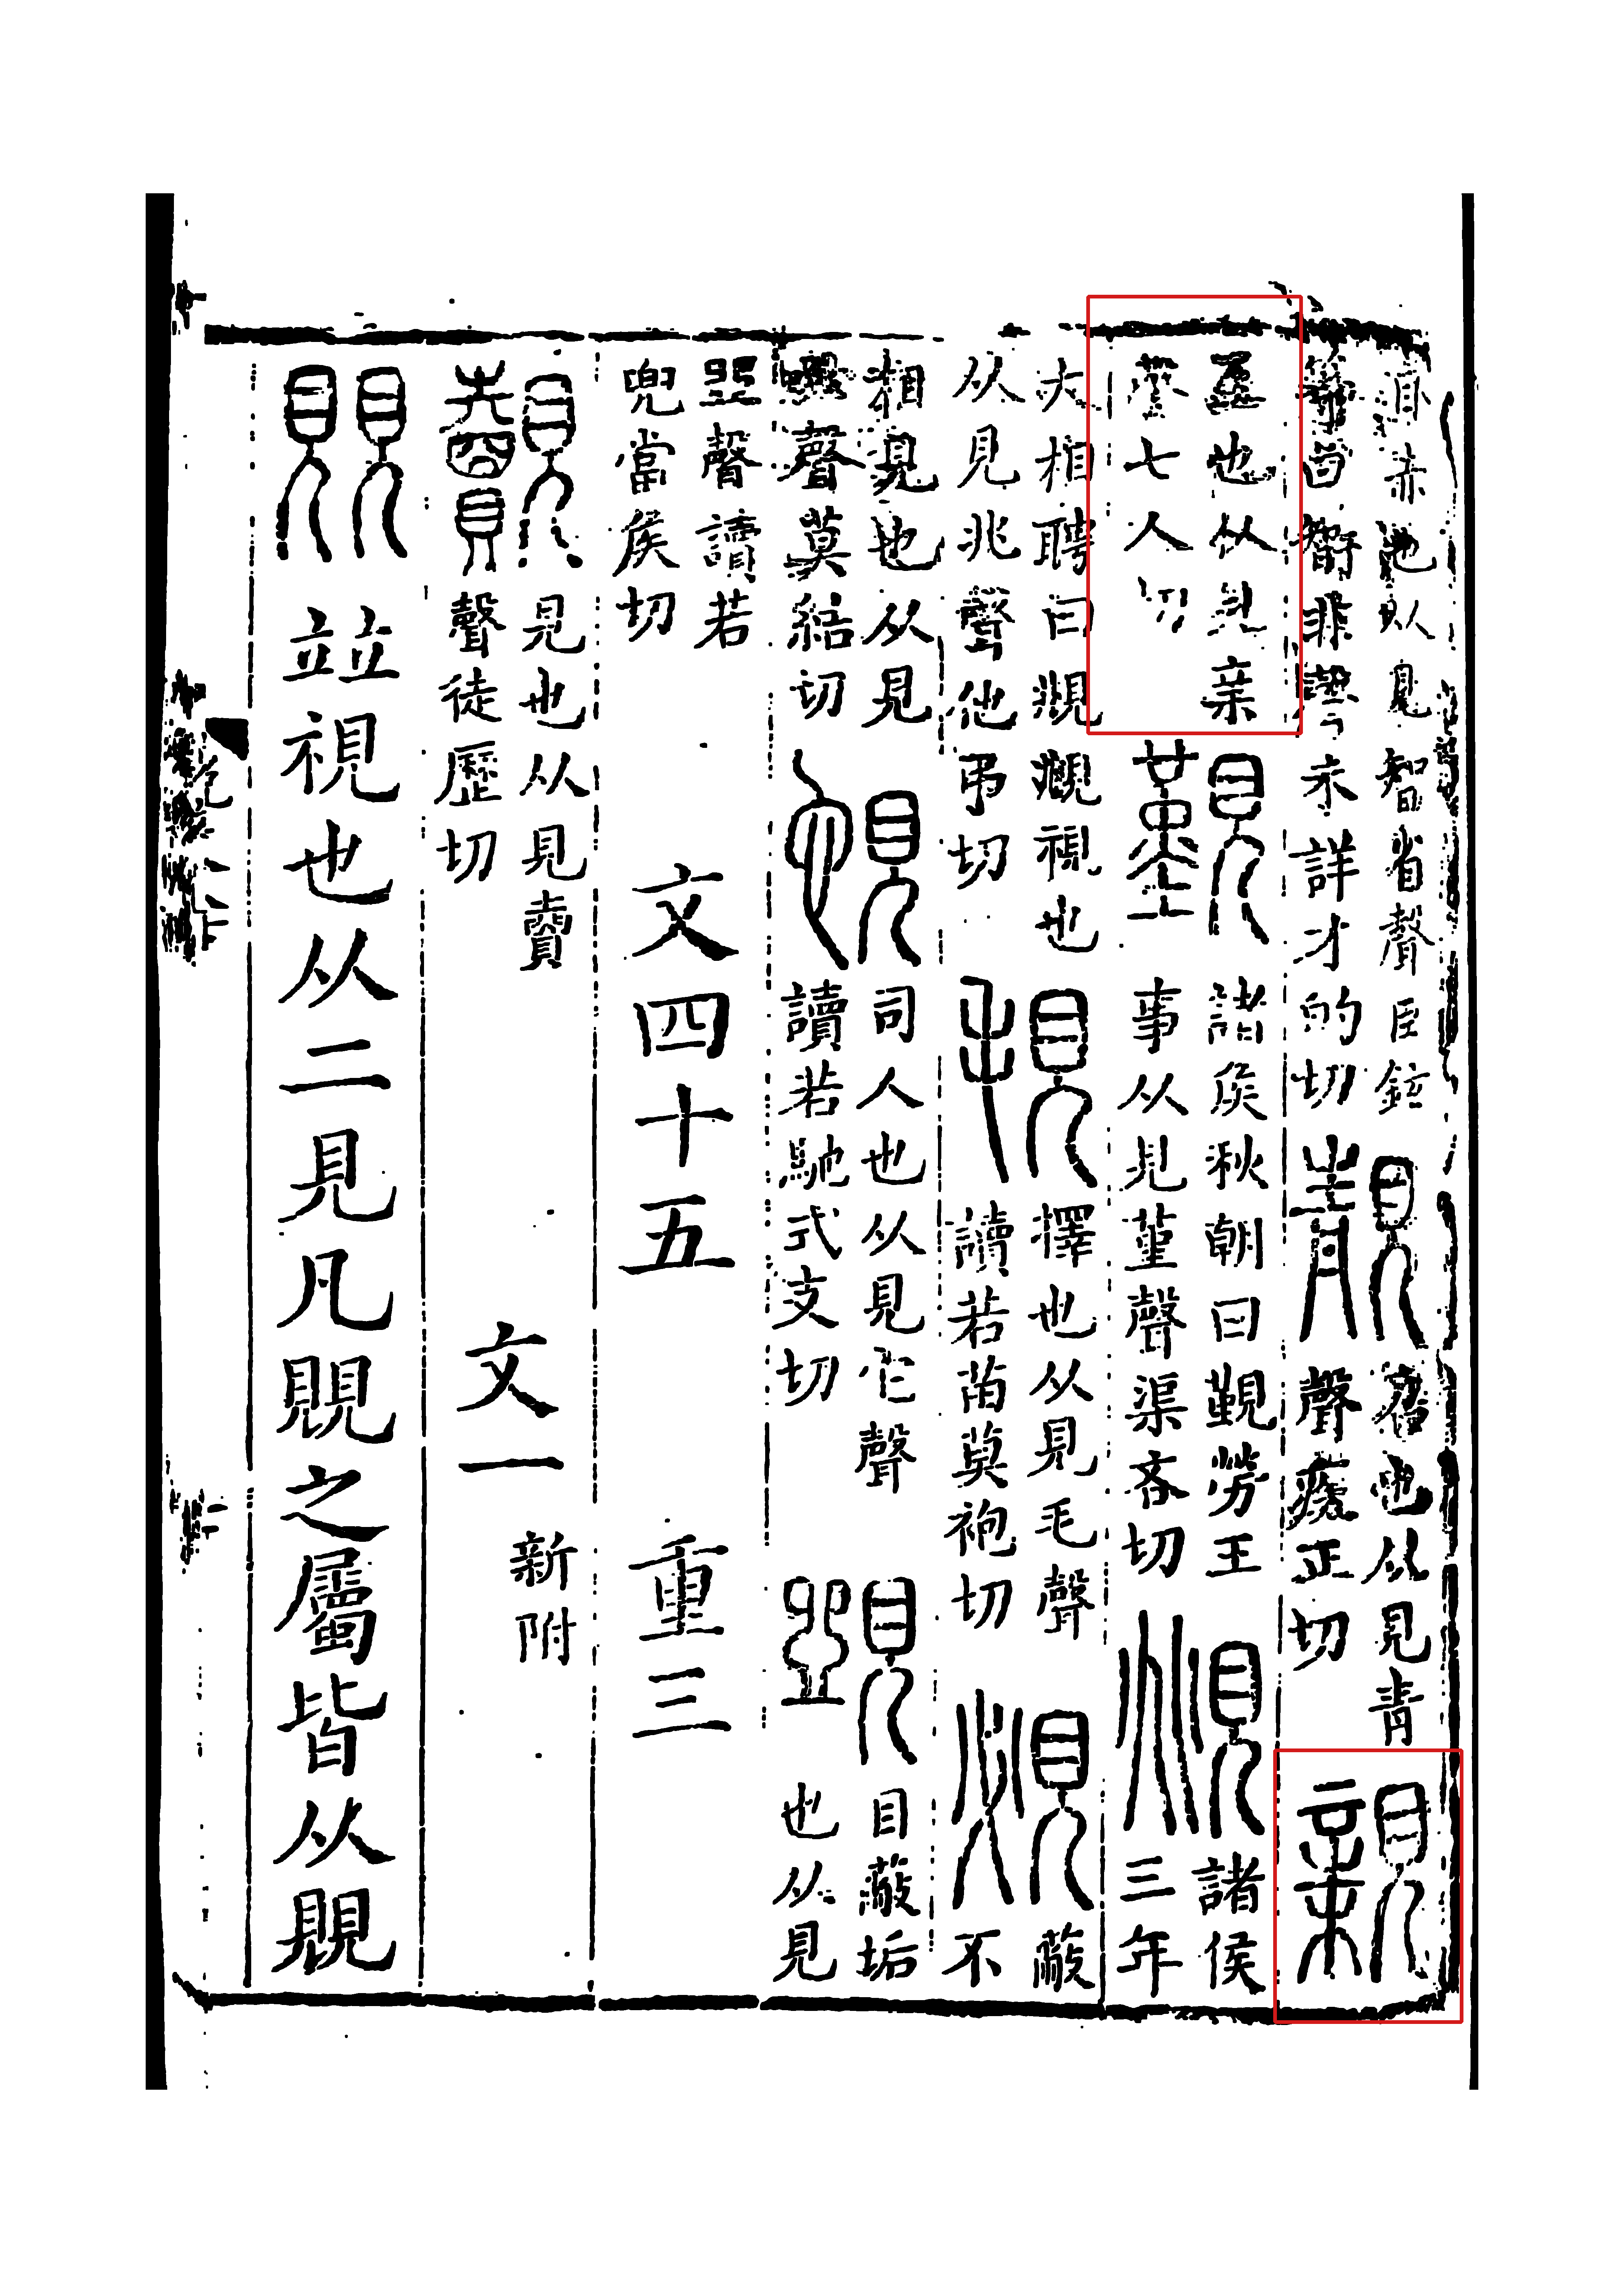 目赤也从見智省聲臣鉉
等曰智非聲未詳才的切
靚
召也从見青
聲疾正切
親
至也从見亲
聲七人切
覲
諸侯秋朝曰覲勞王
事从見堇聲渠吝切
覜
諸侯
三年
大相聘曰覜覜視也
从見兆聲他弔切
覒
擇也从見毛聲
讀若苗莫袍切
覕
蔽
不
相見也从見
必聲莫結切
司人也从見它聲
讀若馳式支切
䚌
目蔽垢
也从見
㔽聲讀若
兜當侯切
文四十五 重三
覿
見也从見賣
聲徒歷切
文一 新附
覞 竝視也从二見凡覞之屬皆从覞